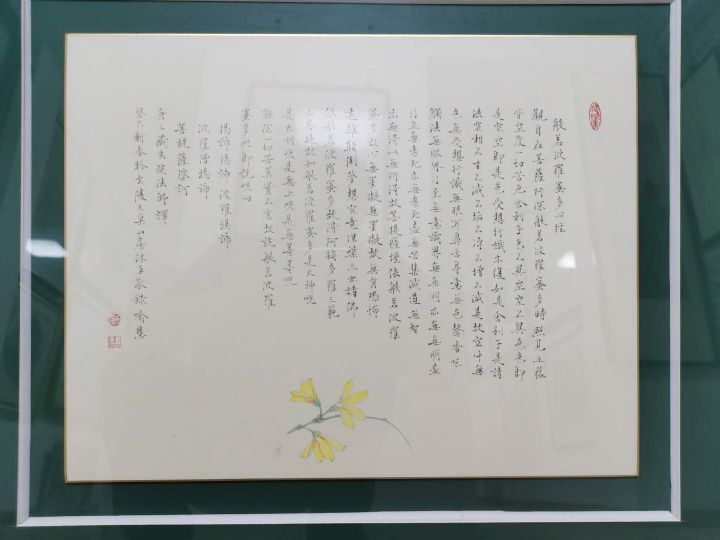 般若波羅蜜多心經
觀自在菩薩行深般若波羅蜜多時照見五蘊
皆空度一切苦厄舍利子色不異空空不異色色即
是空空即是色受想行識亦復如是舍利子是諸
法空相不生不滅不垢不淨不增不減是故空中無
色無受想行識無眼耳鼻舌身意無色聲香味
觸法無眼界乃至無意識界無無明亦無無明盡
乃至無老死亦無老死盡無苦集滅道無智
亦無得以無所得故菩提薩埵依般若波羅
蜜多故心無罣礙無罣礙故無有恐怖
遠離顛倒夢想究竟涅槃三世諸佛
依般若波羅蜜多故得阿耨多羅三藐
三菩提故知般若波羅蜜多是大神咒
是大明咒是無上咒是無等等咒
能除一切苦真實不虛故說般若波羅
蜜多咒即說咒曰
揭諦揭諦 波羅揭諦
波羅僧揭諦
菩提薩婆訶
唐三藏玄奘法師譯
新春於 沐手敬錄